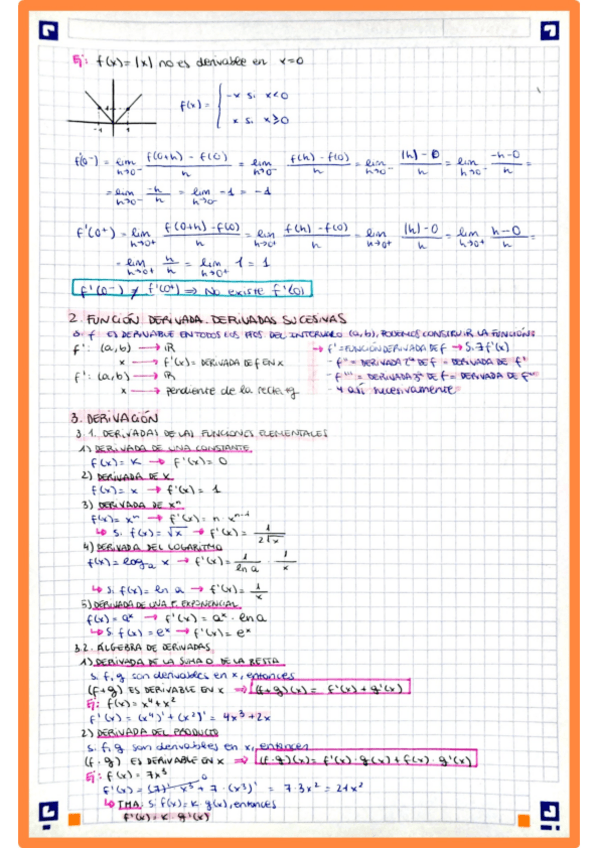 Ej: f(x)=|x| no es derivable en x=0
f(x) = { -x si x<0
x si x≥0
-1 1
f'(0⁻) = lim h→0⁻ f(0+h) - f(0) / h = lim h→0⁻ f(h) - f(0) / h = lim h→0⁻ |h| - 0 / h = lim h→0⁻ -h-0 / h =
= lim h→0⁻ -h / h = lim h→0⁻ -1 = -1
f'(0⁺) = lim h→0⁺ f(0+h) - f(0) / h = lim h→0⁺ f(h) - f(0) / h = lim h→0⁺ |h| - 0 / h = lim h→0⁺ h-0 / h =
= lim h→0⁺ h / h = lim h→0⁺ 1 = 1
f'(0⁻) ≠ f'(0⁺) ⇒ No existe f'(0)
2. FUNCIÓN DERIVADA. DERIVADAS SUCESIVAS
Si f ES DERIVABLE EN TODOS LOS PTOS DEL INTERVALO (a,b), PODEMOS CONSTRUIR LA FUNCIÓN:
f': (a,b) → ℝ
x → f'(x) = DERIVADA DE f EN x
f': (a,b) → ℝ
x → pendiente de la recta tg
→ f' = FUNCIÓN DERIVADA DE f → Si ∃ f'(x)
- f'' = DERIVADA 2ª DE f = DERIVADA DE f'
- f''' = DERIVADA 3ª DE f = DERIVADA DE f''
- Y así sucesivamente
3. DERIVACIÓN
3.1. DERIVADAS DE LAS FUNCIONES ELEMENTALES
1) DERIVADA DE UNA CONSTANTE
f(x) = K → f'(x) = 0
2) DERIVADA DE X
f(x) = x → f'(x) = 1
3) DERIVADA DE xⁿ
f(x) = xⁿ → f'(x) = n · xⁿ⁻¹
↳ Si f(x) = √x → f'(x) = 1 / 2√x
4) DERIVADA DEL LOGARITMO
f(x) = logₐ x → f'(x) = 1 / ln a · 1 / x
↳ Si f(x) = ln a → f'(x) = 1 / x
5) DERIVADA DE UNA F. EXPONENCIAL
f(x) = aˣ → f'(x) = aˣ · ln a
↳ Si f(x) = eˣ → f'(x) = eˣ
3.2. ÁLGEBRA DE DERIVADAS
1) DERIVADA DE LA SUMA O DE LA RESTA
Si f, g son derivables en x, entonces
(f+g) ES DERIVABLE EN X ⇒ (f+g)(x) = f'(x) + g'(x)
Ej: f(x) = x⁴ + x²
f'(x) = (x⁴)' + (x²)' = 4x³ + 2x
2) DERIVADA DEL PRODUCTO
Si f, g son derivables en x, entonces
(f · g) ES DERIVABLE EN X ⇒ (f · g)(x) = f'(x) · g(x) + f(x) · g'(x)
Ej: f(x) = 7x³
f'(x) = (7)' · x³ + 7 · (x³)' = 7 · 3x² = 21x²
0
↳ TMA: Si f(x) = K · g(x), entonces
f'(x) = K · g'(x)